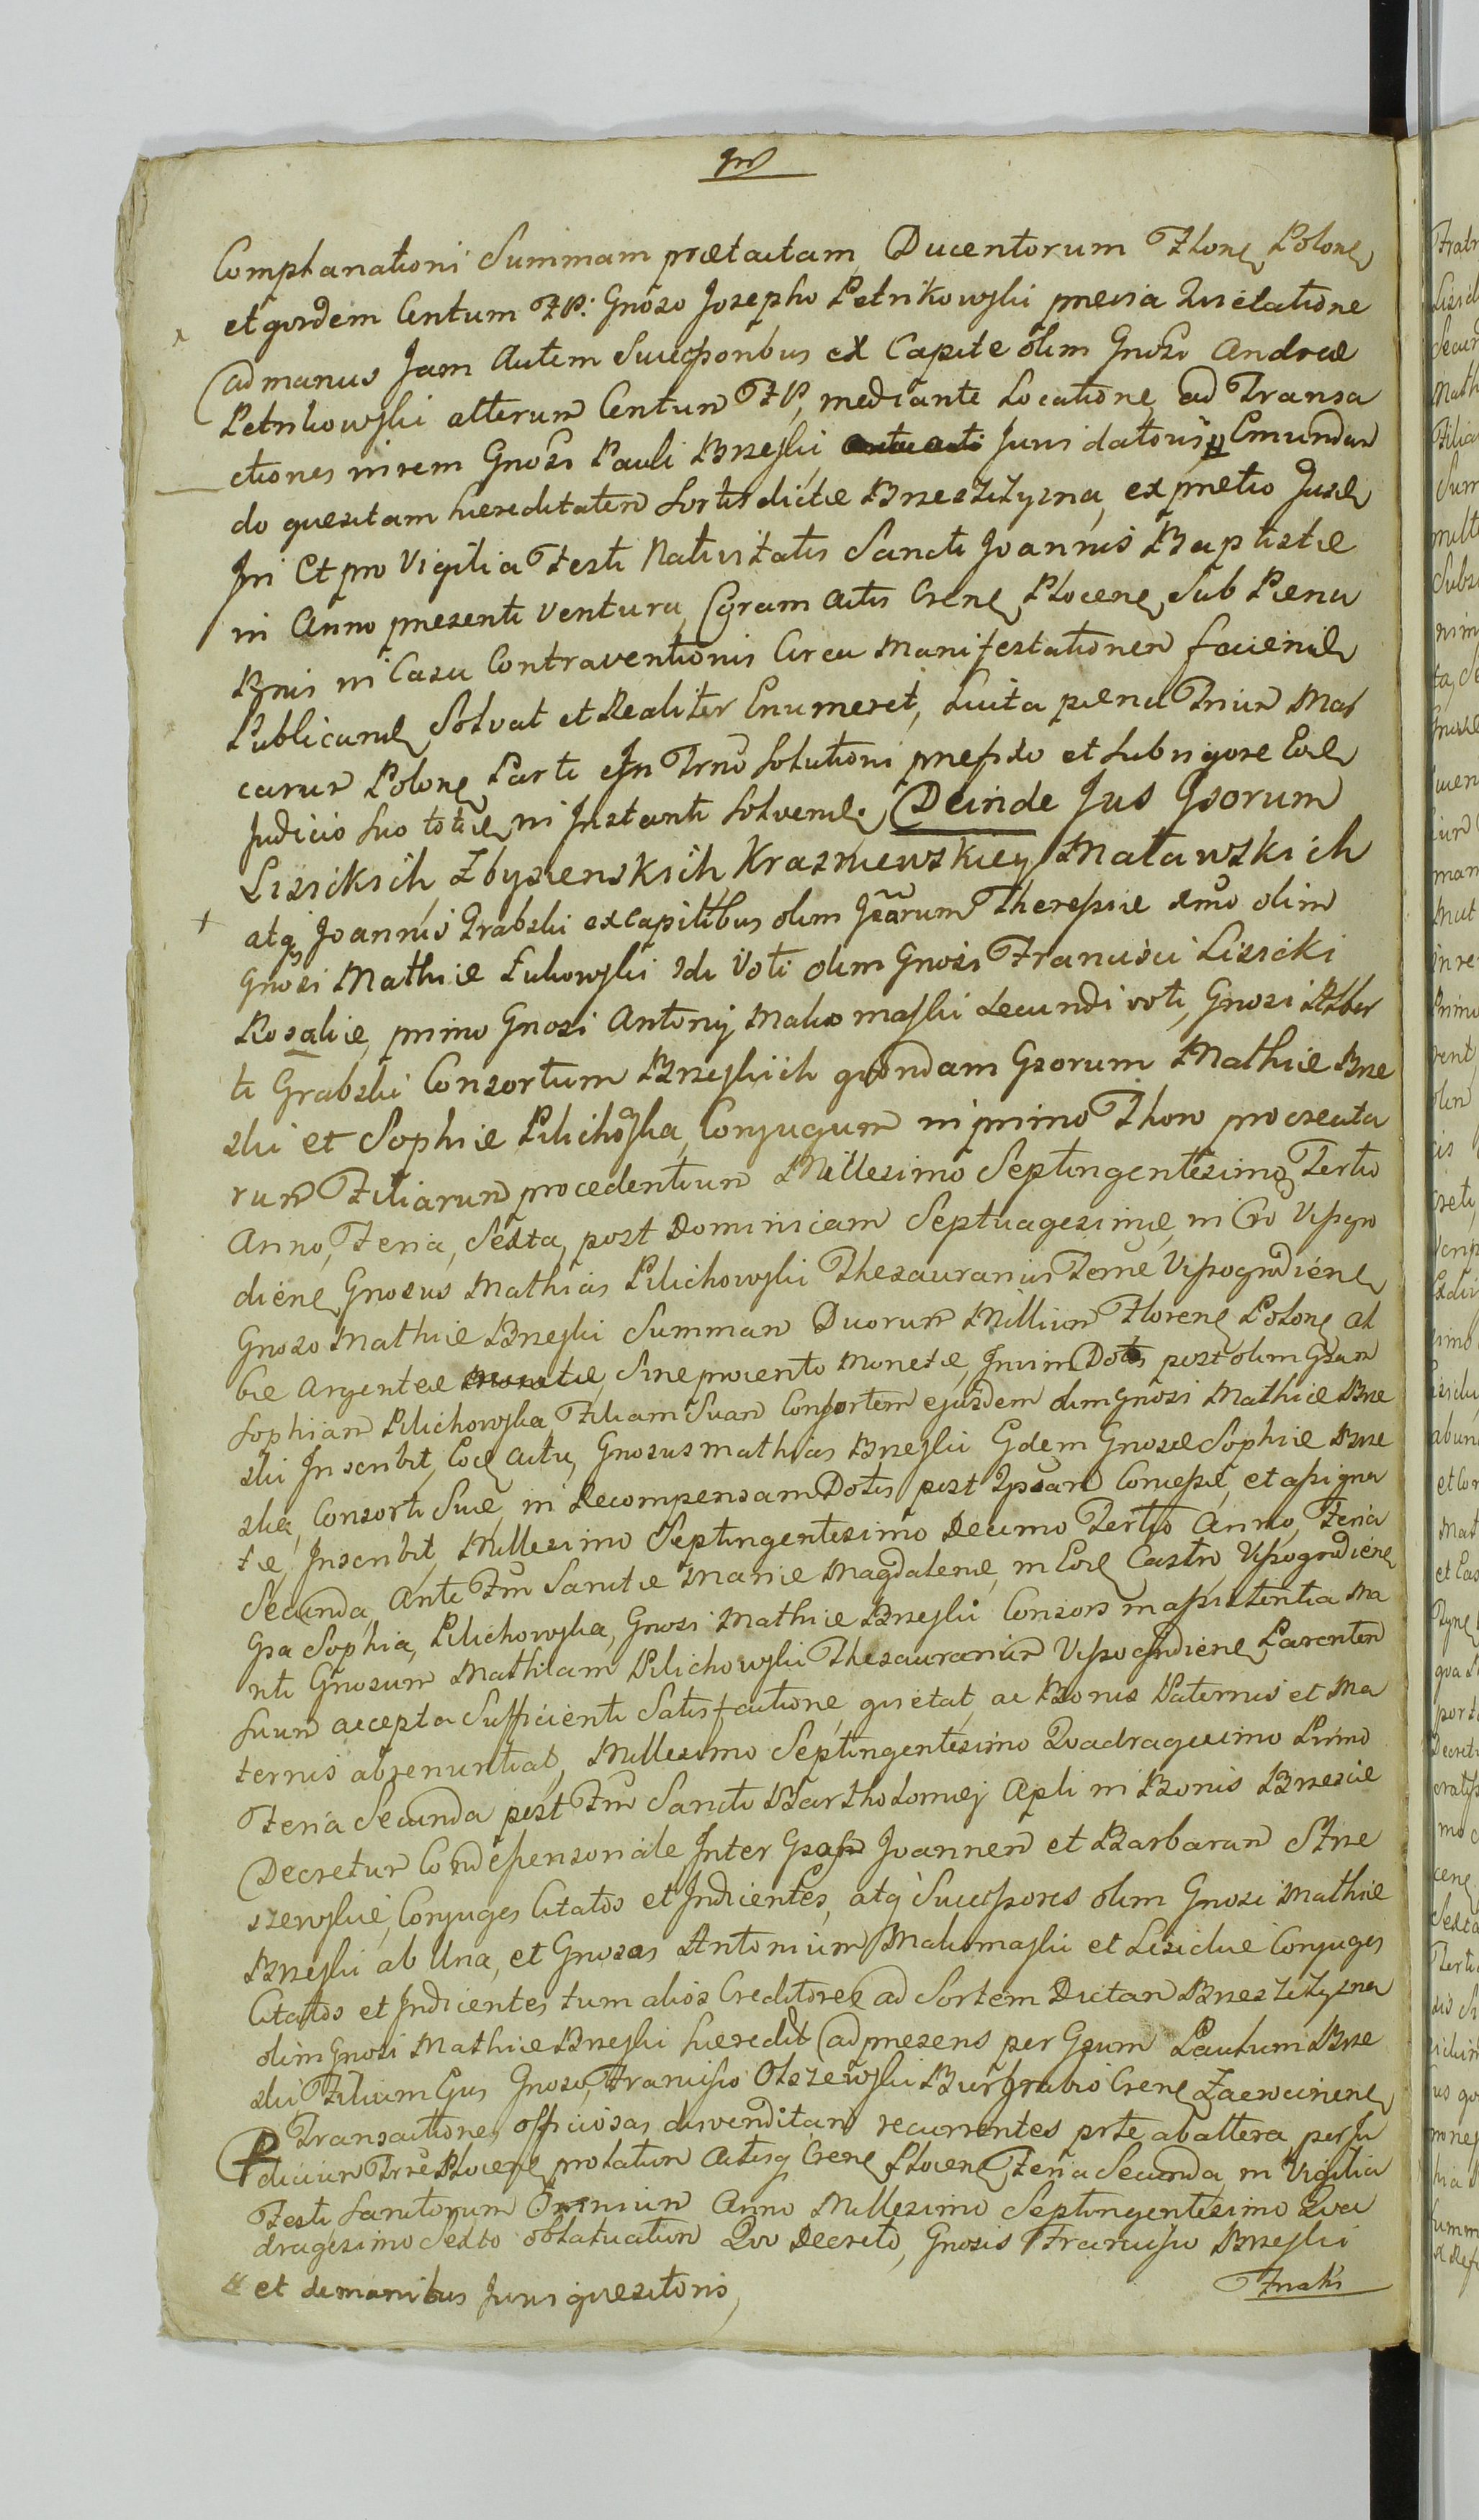 Complanationi Summam praetactam Ducentorum Flone Polone
et quidem Centum FP: Gnoso Josepho Petrikowski previa Quietatione
ad manus Jam Autem Successoribus ex Capite olim Gnosi Andreae
Petrikowski alterum Centum FP, mediante Locatione, ad Transa
ctiones in rem Gnosi Pauli Brzeski Juris datoris Emundan
do quesitam hereditatem Sortis dictae Brzeszczyzna, ex pretio Jusde
Jn Et pro Vigilia Festi Nativitatis Sancti Joannis Baptistae
in Anno presenti ventura, Coram Actis Crene Plocene, Sub Paena
Bnis in Casu Contraventionis Circa Manifestationem faciend
Publicand Solvat et Realiter Enumeret, Luita paena Trium Mar
carum Polone Parti Jn Trno Solutioni prefixo et Sub rigore Eod
Judicio suo toties in Instanti Solvend. Deinde Jus Gsorum
Lisickich, Zbyszenskich, Krasniewskiey Matawskich
atq Joannis Grabski ex Capitibus olim Gsarum Theressiae 1mo olim
Gnosi Mathiae Zukowski 2di Voti olim Gnosi Francisci Lisicki
Rosaliae, primo Gnosi Antonij Makomaski Secundi voti, Gnosi Alber
ti Grabski Consortum Brzeskich quondam Gsorum Mathiae Brze
ski et Sophiae Pilichoska, Conjugum in primo Thoro procreata
rum Filiarum procedentium Millesimo Septingentesimo Tertio
Anno, Feria, Sexta, post Dominicam Septuagesimae, in Cro Vissogro
diene Gnosus Mathias Pilichowski Thesaurarius Terrae Vissogrodiene
Gnoso Mathiae Brzeski Summam Duorum Millium Florene Polone al
bae Argenteae Sine provento Monetae, Jn vim Dotis post olim Gsam
Sophiam Pilichowska Filiam Suam Consortem ejusdem olim Gnosi Mathiae Brze
ski Jnscribit, Eod Actu, Gnosus Mathias Brzeski Gdem Gnosae Sophiae Brze
ska, Consorti Suae, in Recompensam Dotis post Ipsam Concessae, et assigna
tae, Jnscribit, Millesimo Septingentesimo Decimo Tertio Anno, Feria
Secunda, Ante Fm Sanctae Mariae Magdalenae, in Eod Castro Vissogrodiene
Gsa Sophia, Pilichowska, Gnosi Mathiae Brzeski Consors in assistentia Ma
riti Gnosum Mathiam Pilichowski Thesaurarium Vissogrodiene Parentem
Suum accepta Sufficienti Satisfactione, quietat, ac Bonis Paternis et Ma
ternis abrenuntiat, Millesimo Septingentesimo Quadragesimo Primo
Feria Secunda post Fm Sancti Bartholomaej Apli in Bonis Brzescie
Decretum Condepensoriale Jnter Gsos Joannem et Barbaram Strze
szewskie, Conjuges Citatos et Jndicentes, atq Successores olim Gnosi Mathiae
Brzeski ab Una, et Gnosos Antonium Makomaski et Lisickie Conjuges
Citatos et Jndicentes tum alios Creditores ad Sortem Dictam Brzeszczyzna
olim Gnosi Mathiae Brzeski heredit ad presens per Gsum Paulum Brze
ski, Filium Ejus Gnoso, Francisco Olszewski Burgrabio Crene Zacrocinene
Transactione, officiosas divenditam recurrentes prte ab altera per Ju
dicium Trre Plocene prolatum Actisq Crene Plocene, Feria Secunda in Vigilia
Festi Sanctorum Omnium Anno Millesimo Septingentesimo Qua
dragesimo Sexto oblatuatum Quo Decreto, Gnosis Francisco Brzeski
et de manibus Juris quesitoris,
Fratri